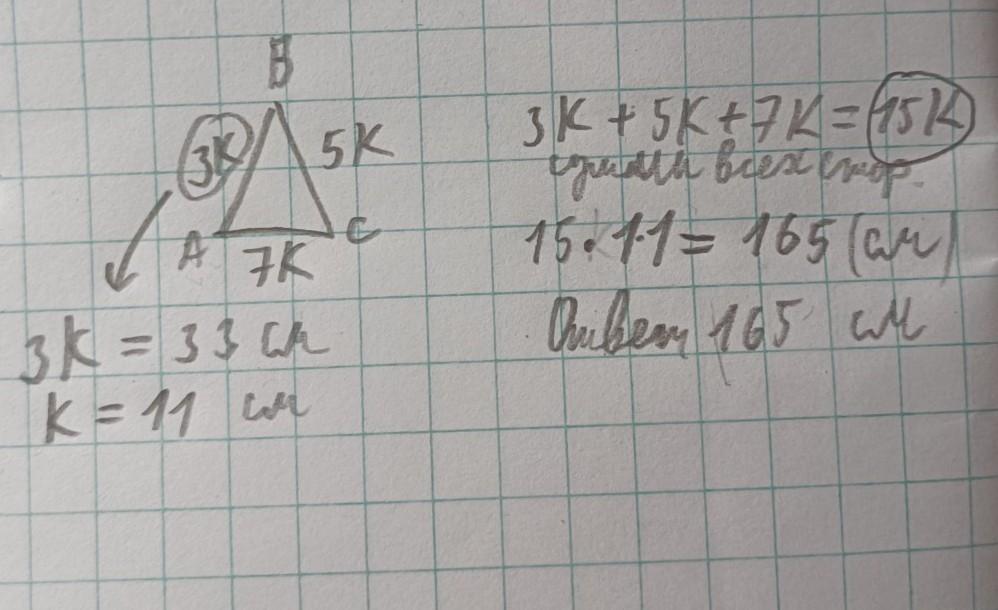 B
3K 5K
A C
7K
3K = 33 см
K = 11 см
3K + 5K + 7K = 15K
сумма всех стор.
15 · 11 = 165 (см)
Ответ 165 см